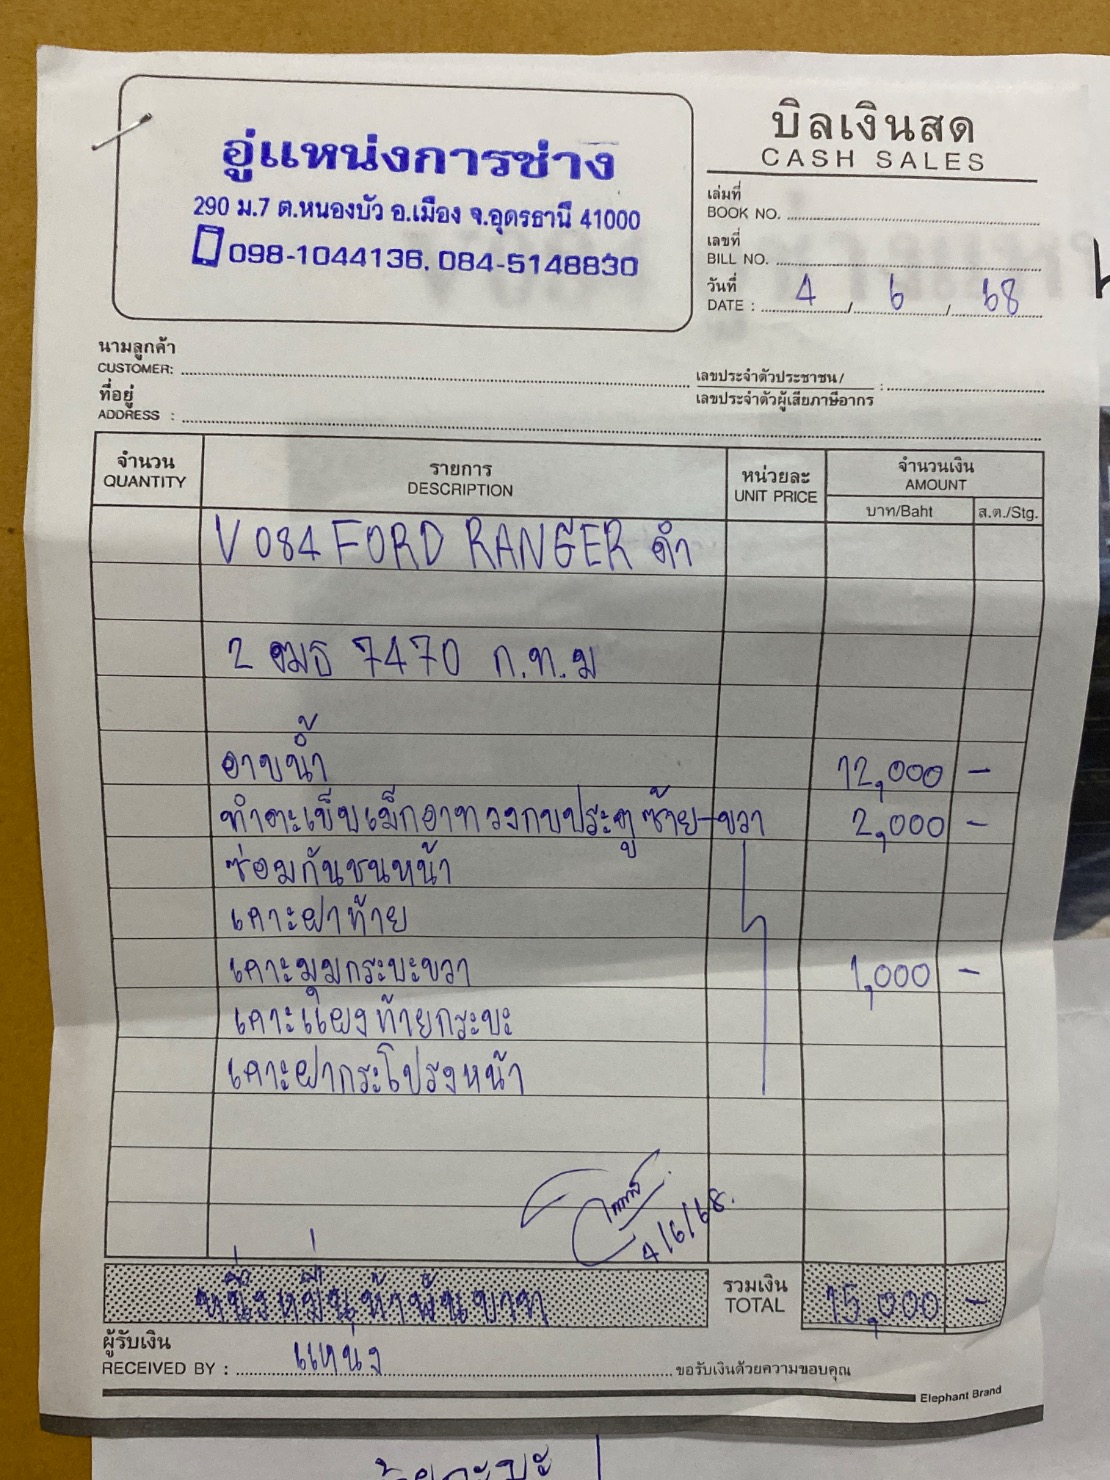 อู่แหน่งการช่าง
290 ม.7 ต.หนองบัว อ.เมือง จ.อุดรธานี 41000
098-1044136, 084-5148830
บิลเงินสด
CASH SALES
เล่มที่
BOOK NO.
เลขที่
BILL NO.
วันที่
DATE : 4 / 6 / 68
นามลูกค้า
CUSTOMER:
เลขประจำตัวประชาชน/ :
เลขประจำตัวผู้เสียภาษีอากร
ที่อยู่
ADDRESS :
จำนวน รายการ หน่วยละ จำนวนเงิน
QUANTITY DESCRIPTION UNIT PRICE AMOUNT
บาท/Baht ส.ต./Stg.
V 084 FORD RANGER ดำ
2 ฒธ 7470 ก.ท.ม
อาบน้ำ 12,000 -
ทำตะเข็บเม็กอาทวงกบประตูซ้าย-ขวา 2,000 -
ซ่อมกันชนหน้า
เคาะฝาท้าย
เคาะมุมกระบะขวา 1,000 -
เคาะแผงท้ายกระบะ
เคาะฝากระโปรงหน้า
4/6/68.
หนึ่งหมื่นห้าพันบาท รวมเงิน 15,000 -
TOTAL
ผู้รับเงิน
RECEIVED BY : แหน่ง ขอรับเงินด้วยความขอบคุณ
Elephant Brand